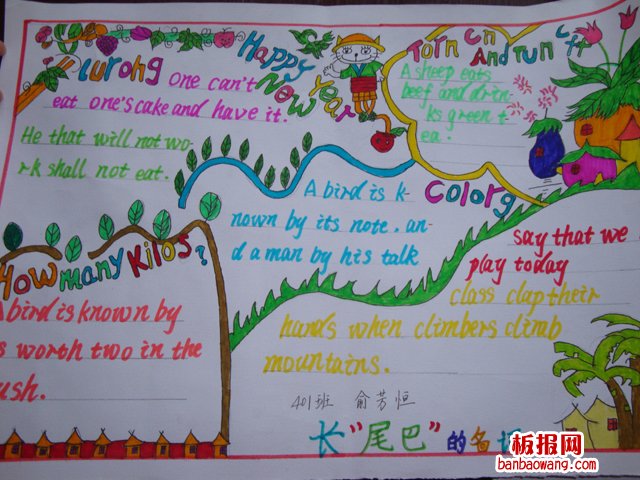 lurong
One can't
eat one's cake and have it.
He that will not wo-
rk shall not eat.
Happy
Now
Year
Torn Cn
And run Cft
A sheep eats
beef and drin-
ks green t-
ea.
A bird is k-
nown by its note, an-
d a man by his talk
Colorg
say that we
play today
class clap their
hands when climbers climb
mountains.
How many Kilos?
A bird is known by
s worth two in the
ush.
401班 俞芳恒
长"尾巴"的名
板报网
banbaowang.com